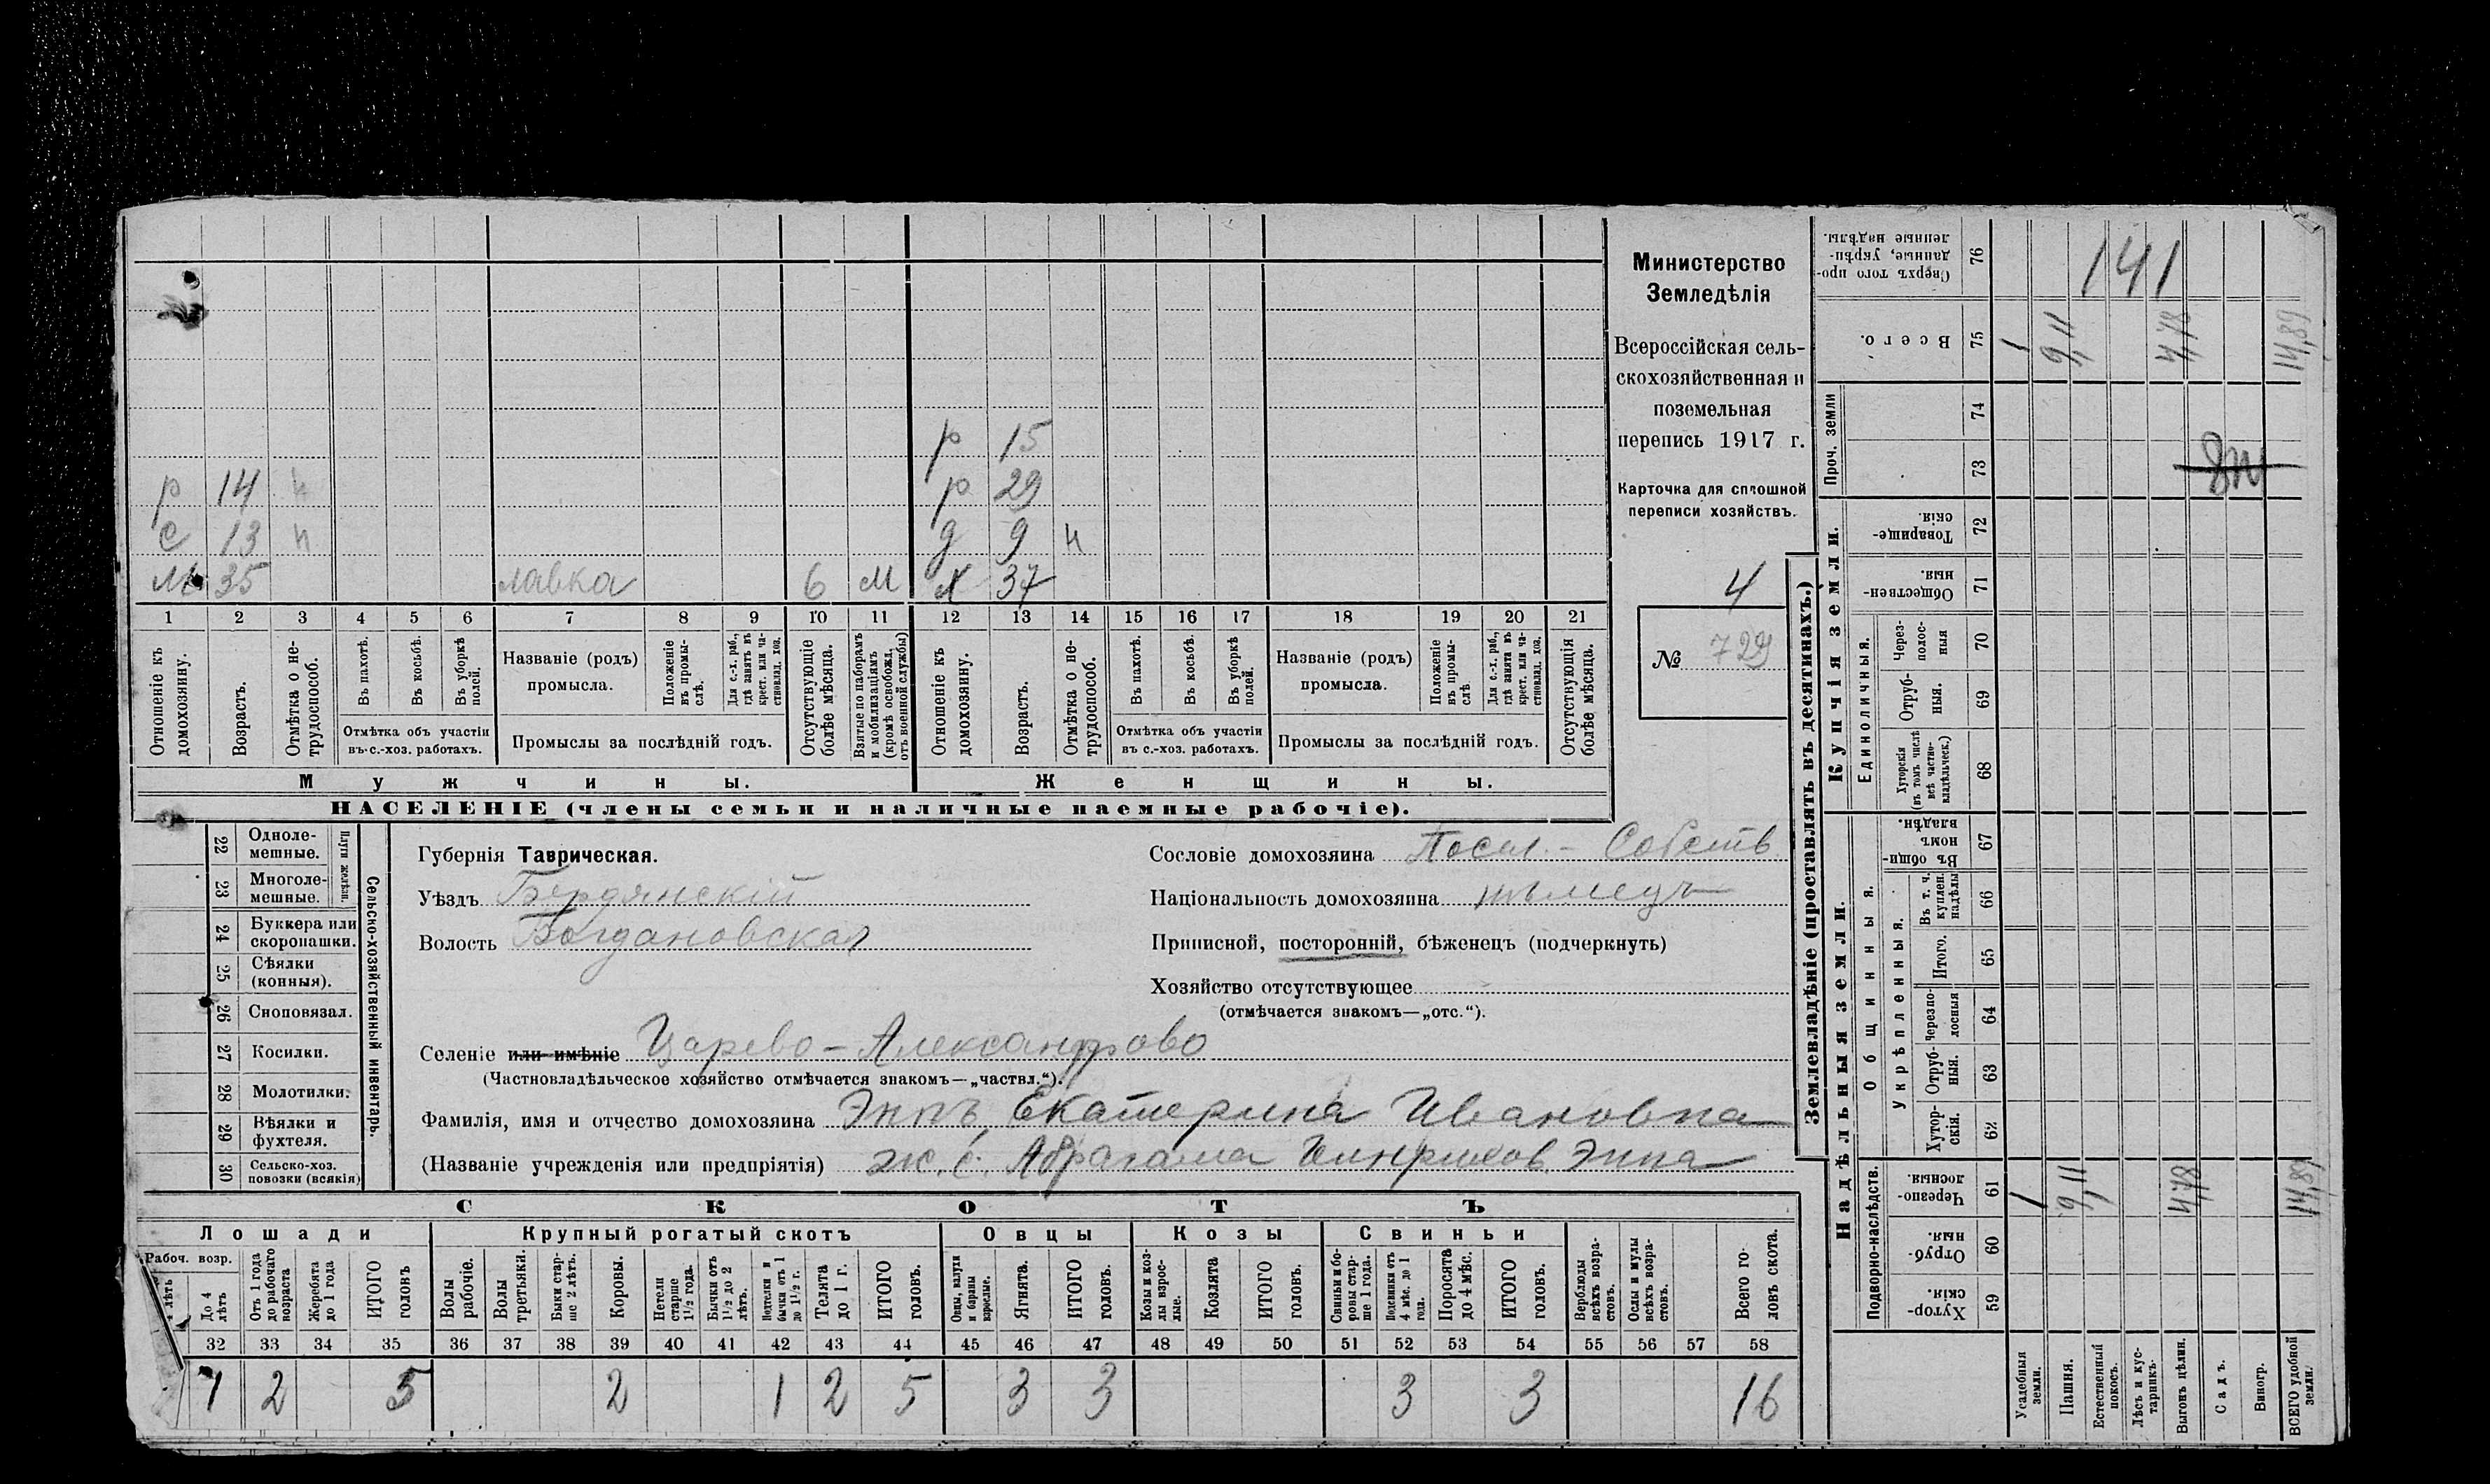 р 15
р 14 н р 29
с 13 н д 9 н
м 35 лавка 6 м х 37
1 2 3 4 5 6 7 8 9 10 11 12 13 14 15 16 17 18 19 20 21
Отношеніе къ домохозяину.
Возрастъ.
Отмѣтка о не-
трудоспособ.
Въ пахотѣ.
Въ косьбѣ.
Въ уборкѣ
полей.
Отмѣтка объ участіи
въ с.-хоз. работахъ.
Названіе (родъ)
промысла.
Положеніе
въ промы-
слѣ.
Для с.-х. раб.,
гдѣ занятъ въ
крест. или ча-
стновлад. хоз.
Промыслы за послѣдній годъ.
Отсутствующіе
болѣе мѣсяца.
Взятые по наборамъ
и мобилизаціямъ
(кромѣ освобожд.
отъ военной службы)
Отношеніе къ
домохозяину.
Возрастъ.
Отмѣтка о не-
трудоспособ.
Въ пахотѣ.
Въ косьбѣ.
Въ уборкѣ
полей.
Отмѣтка объ участіи
въ с.-хоз. работахъ.
Названіе (родъ)
промысла.
Положеніе
въ промы-
слѣ
Для с.-х. раб.,
гдѣ занята въ
крест. или ча-
стновлад. хоз.
Промыслы за послѣдній годъ.
Отсутствующія
болѣе мѣсяца.
Мужчины.
Женщины.
НАСЕЛЕНІЕ (члены семьи и наличные наемные рабочіе).
Министерство
Земледѣлія
Всероссійская сель-
скохозяйственная и
поземельная
перепись 1917 г.
Карточка для сплошной
переписи хозяйствъ.
4
№ 729
22 Одноле-
мешные.
23 Многоле-
мешные.
Плуги желѣзн.
24 Буккера или
скоропашки.
25 Сѣялки
(конныя).
26 Сноповязал.
27 Косилки.
28 Молотилки.
29 Вѣялки и
фухтеля.
30 Сельско-хоз.
повозки (всякія)
Сельско-хозяйственный инвентарь.
Губернія Таврическая.
Уѣздъ Бердянскій
Волость Богдановская
Селеніе или имѣніе Царево-Александрово
(Частновладѣльческое хозяйство отмѣчается знакомъ—„частвл.“).
Фамилія, имя и отчество домохозяина Эппъ Екатерина Ивановна
(Названіе учрежденія или предпріятія) ж. с. Абрагама Генрихов. Эппа
Сословіе домохозяина Посел.- Собств.
Національность домохозяина нѣмецъ
Приписной, посторонній, бѣженецъ (подчеркнуть)
Хозяйство отсутствующее
(отмѣчается знакомъ—„отс.“).
СКОТЪ
Лошади
Крупный рогатый скотъ
Овцы
Козы
Свиньи
Рабоч. возр.
До 4
лѣтъ
Отъ 1 года
до рабочаго
возраста
Жеребята
до 1 года
ИТОГО
головъ
Волы
рабочіе.
Волы
третьяки.
Быки стар-
ше 2 лѣтъ.
Коровы.
Нетели
старше
1½ года.
Бычки отъ
1½ до 2
лѣтъ.
Подтелки и
бычки отъ 1
до 1½ г.
Телята
до 1 г.
ИТОГО
головъ.
Овцы, валухи
и бараны
взрослые.
Ягнята.
ИТОГО
головъ.
Козы и коз-
лы взрос-
лые.
Козлята
ИТОГО
головъ.
Свиньи и бо-
ровы стар-
ше 1 года.
Подсвинки отъ
4 мѣс. до 1
года.
Поросята
до 4 мѣс.
ИТОГО
головъ.
Верблюды
всѣхъ возра-
стовъ.
Ослы и мулы
всѣхъ возра-
стовъ.
Всего го-
ловъ скота.
32 33 34 35 36 37 38 39 40 41 42 43 44 45 46 47 48 49 50 51 52 53 54 55 56 57 58
1 2 5 2 1 2 5 3 3 3 3 16
Землевладѣніе (проставлять въ десятинахъ.)
Сверхъ того про-
данные, укрѣп-
ленные надѣлы.
76
141
Всего.
75
1 9,11 4,78 14,89
Проч. земли
74
73
Купчія земли.
Товарище-
скія.
72
Обществен-
ныя.
71
Единоличныя.
Через-
полос-
ныя
70
Отруб-
ныя.
69
Хуторскія
(въ томъ числѣ
всѣ частно-
владѣльческ.)
68
Надѣльныя земли.
Общинныя.
Въ общи-
номъ
владѣн.
67
Укрѣпленныя.
Въ т. ч.
куплен.
надѣлы
66
Итого.
65
Черезпо-
лосныя
64
Отруб-
ныя.
63
Хутор-
скія.
62
Подворно-наслѣдств.
Черезпо-
лосныя.
61
1 9,11 4,78 14,89
Отруб-
ныя.
60
Хутор-
скія.
59
Усадебныя
земли.
Пашня.
Естественный
покосъ.
Лѣсъ и кус-
тарникъ.
Выгонъ цѣлин.
Садъ.
Виногр.
ВСЕГО удобной
земли.